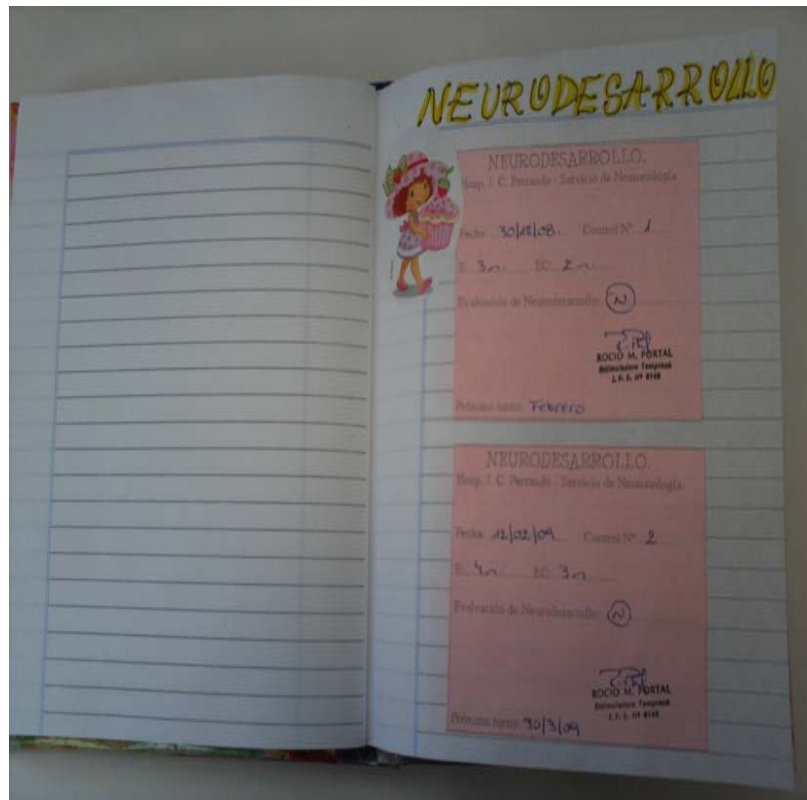 NEURODESARROLLO
NEURODESARROLLO.
Hosp. J. C. Perrando - Servicio de Neonatología
Fecha: 30/12/08. Control Nº 1
E: 3m. EC: 2m.
Evaluación de Neurodesarrollo: N
ROCIO M. PORTAL
Estimuladora Temprana
Próximo turno: Febrero
NEURODESARROLLO.
Hosp. J. C. Perrando - Servicio de Neonatología.
Fecha: 12/02/09 Control Nº 2
E: 4m EC: 3m
Evaluación de Neurodesarrollo: N
ROCIO M. PORTAL
Estimuladora Temprana
Próximo turno: 30/3/09